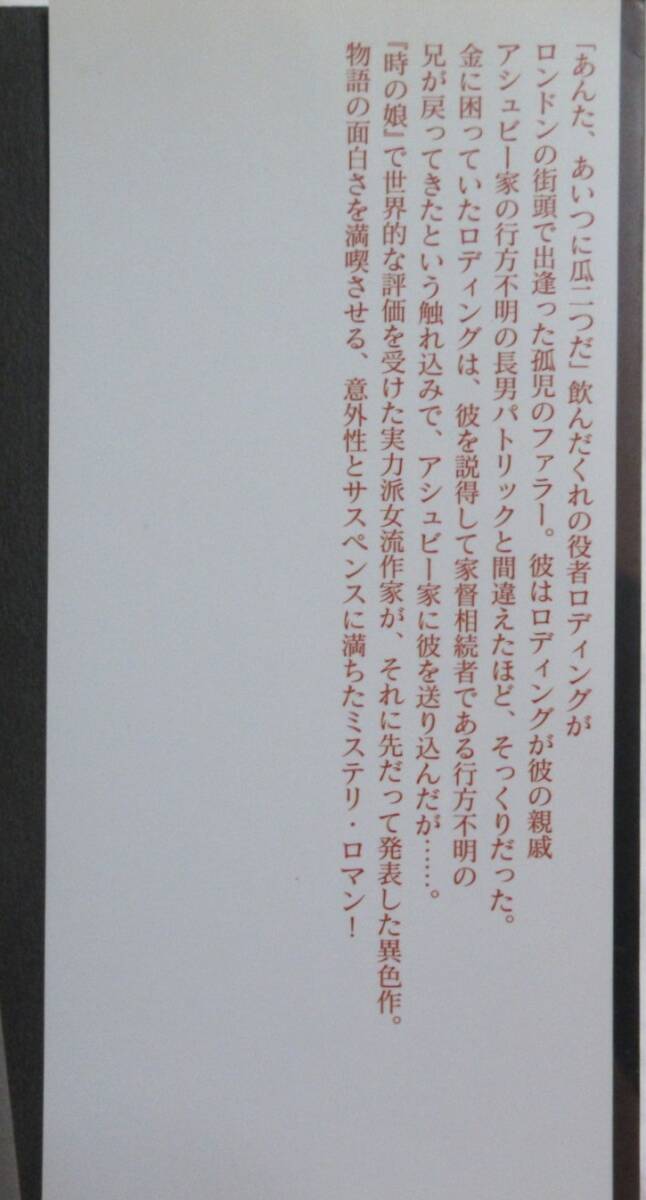 「あんた、あいつに瓜二つだ」飲んだくれの役者ロディングが
ロンドンの街頭で出逢った孤児のファラー。彼はロディングが彼の親戚
アシュビー家の行方不明の長男パトリックと間違えたほど、そっくりだった。
金に困っていたロディングは、彼を説得して家督相続者である行方不明の
兄が戻ってきたという触れ込みで、アシュビー家に彼を送り込んだが……。
『時の娘』で世界的な評価を受けた実力派女流作家が、それに先だって発表した異色作。
物語の面白さを満喫させる、意外性とサスペンスに満ちたミステリ・ロマン！